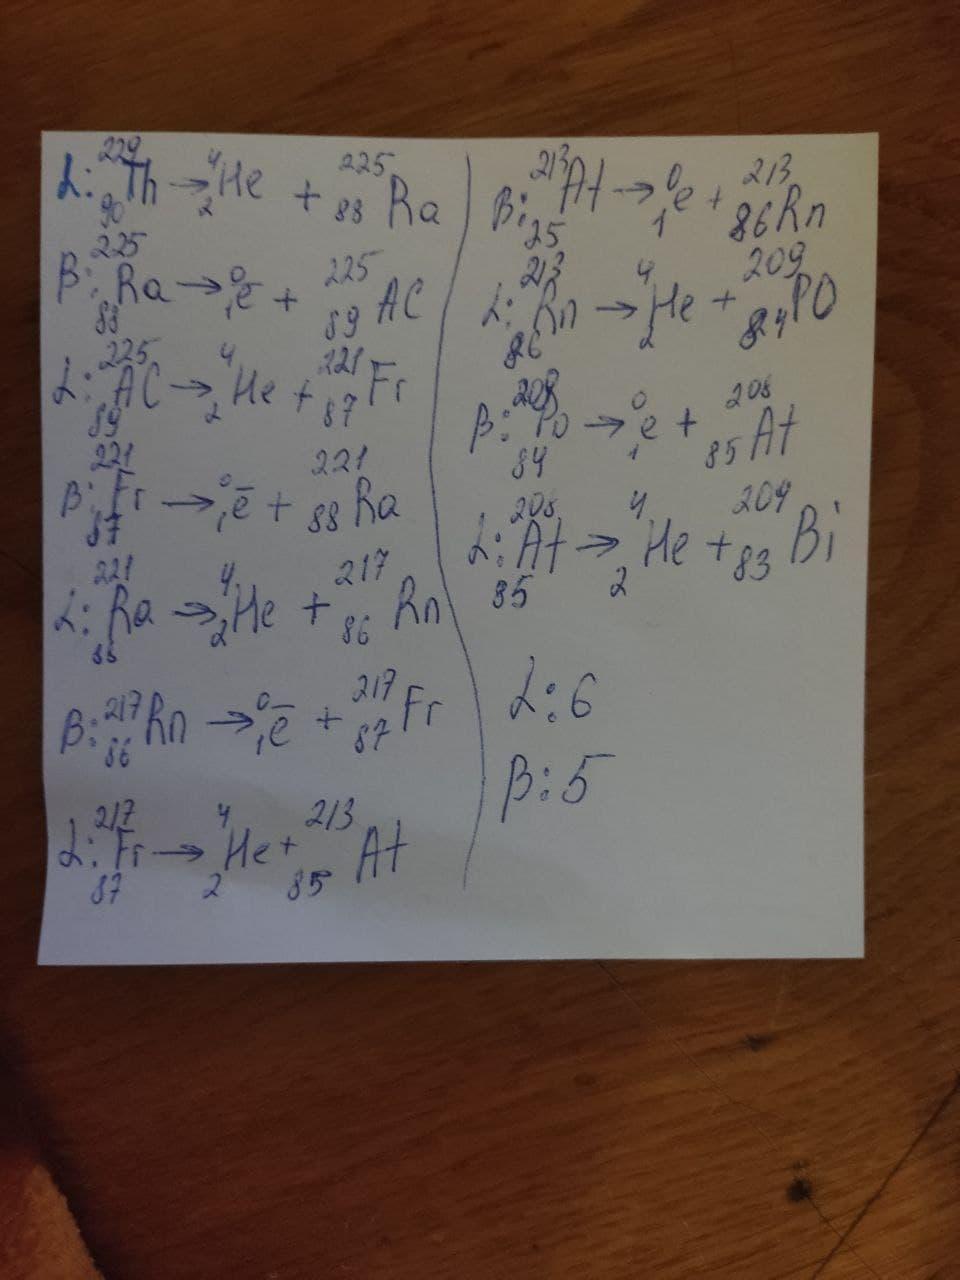 L: ²²⁹₉₀Th → ⁴₂He + ²²⁵₈₈Ra
β: ²²⁵₈₈Ra → ⁰₁e̅ + ²²⁵₈₉AC
L: ²²⁵₈₉AC → ⁴₂He + ²²¹₈₇Fr
β: ²²¹₈₇Fr → ⁰₁e̅ + ²²¹₈₈Ra
L: ²²¹₈₈Ra → ⁴₂He + ²¹⁷₈₆Rn
β: ²¹⁷₈₆Rn → ⁰₁e̅ + ²¹⁷₈₇Fr
L: ²¹⁷₈₇Fr → ⁴₂He + ²¹³₈₅At
β: ²¹³₂₅At → ⁰₁e + ²¹³₈₆Rn
L: ²¹³₈₆Rn → ⁴₂He + ²⁰⁹₈₄PO
β: ₈₄Po → ⁰₁e + ²⁰⁸₈₅At
L: ²⁰⁸₈₅At → ⁴₂He + ²⁰⁴₈₃Bi
L: 6
β: 5